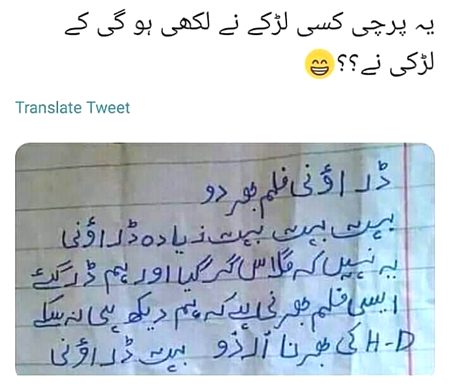 یہ پرچی کسی لڑکے نے لکھی ہو گی کے
لڑکی نے؟؟😁
Translate Tweet
ڈراؤنی فلم بھر دو
بہت بہت بہت زیادہ ڈراؤنی
یہ نہیں کہ گلاس گر گیا اور ہم ڈر گئے
ایسی فلم بھرنی ہے کہ ہم دیکھ ہی نہ سکے
H-D کی بھرنا اردو بہت ڈراؤنی